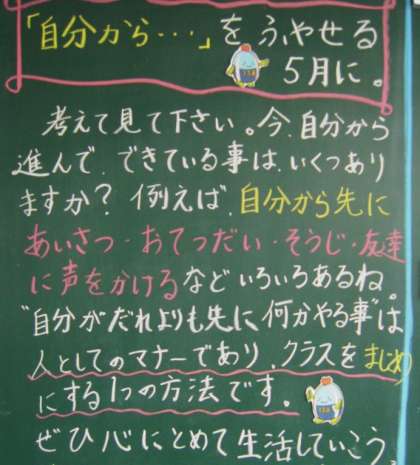 「自分から・・・」をふやせる
5月に。
考えて見て下さい。今、自分から
進んで、できている事は、いくつあり
ますか？例えば、自分から先に
あいさつ・おてつだい・そうじ・友達
に声をかけるなどいろいろあるね。
"自分がだれよりも先に何かやる事"は
人としてのマナーであり、クラスをまじめ
にする1つの方法です。
ぜひ心にとめて生活していこう